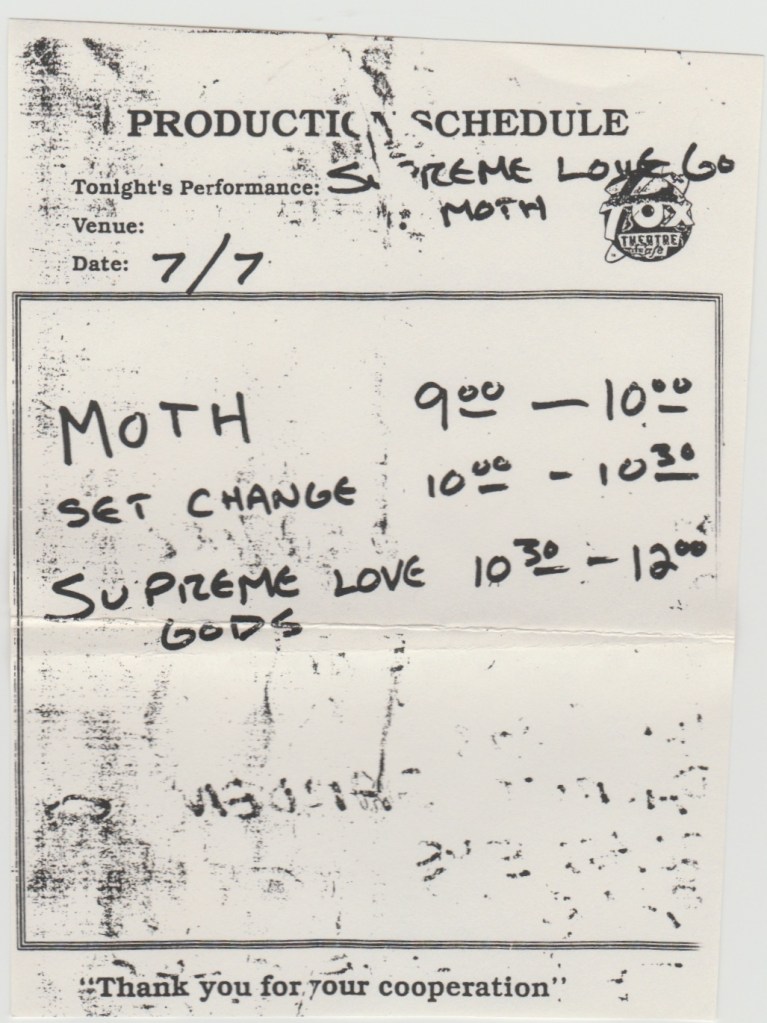 PRODUCTION SCHEDULE
Tonight's Performance: SUPREME LOVE GO
MOTH
Venue:
FOX
THEATRE
Date: 7/7
MOTH 9:00 — 10:00
SET CHANGE 10:00 - 10:30
SUPREME LOVE 10:30 - 12:00
GODS
"Thank you for your cooperation"